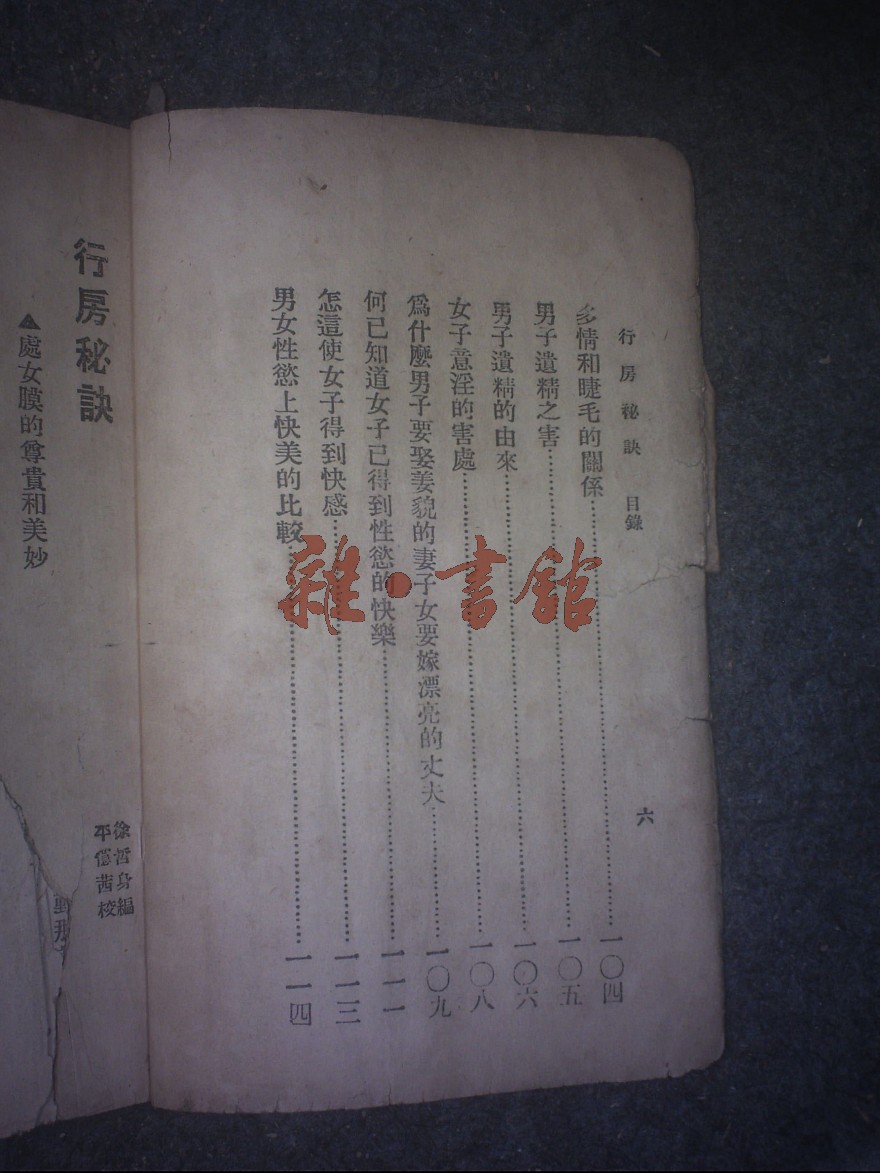 行房秘訣 目錄 六
多情和睫毛的關係…………一〇四
男子遺精之害…………一〇五
男子遺精的由來…………一〇六
女子意淫的害處…………一〇八
爲什麼男子要娶美貌的妻子女要嫁漂亮的丈夫…………一〇九
何已知道女子已得到性慾的快樂…………一一一
怎這使女子得到快感…………一一三
男女性慾上快美的比較…………一一四
徐哲身編
平儋茜校
行房秘訣
▲處女膜的尊貴和美妙
雜·書館